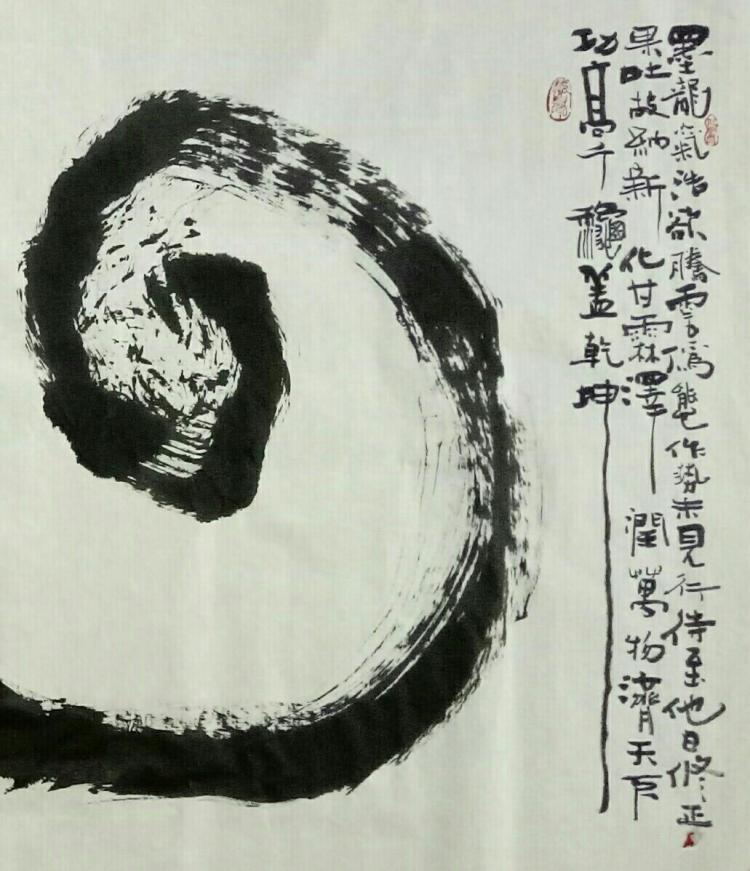 墨龍氣浩欲騰雲僞態作勢未見行待至他日修正
果吐故納新化甘霖澤潤萬物濟天下
功高千龝蓋乾坤